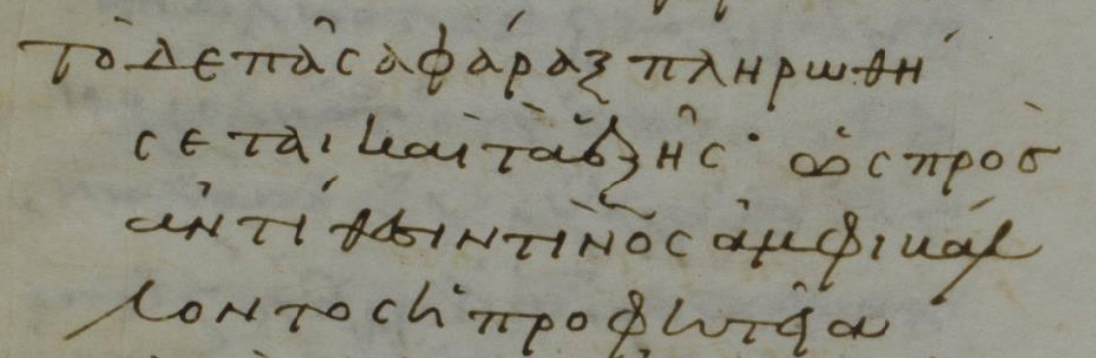 Τὸ δὲ πᾶσα φάραξ πληρωθή
σεται καὶ τὰ ἑξῆς· ὡς πρὸς
ἀντίθεσιν τινὸς ἀμφιβάλ
λοντος ἡ προφητεία